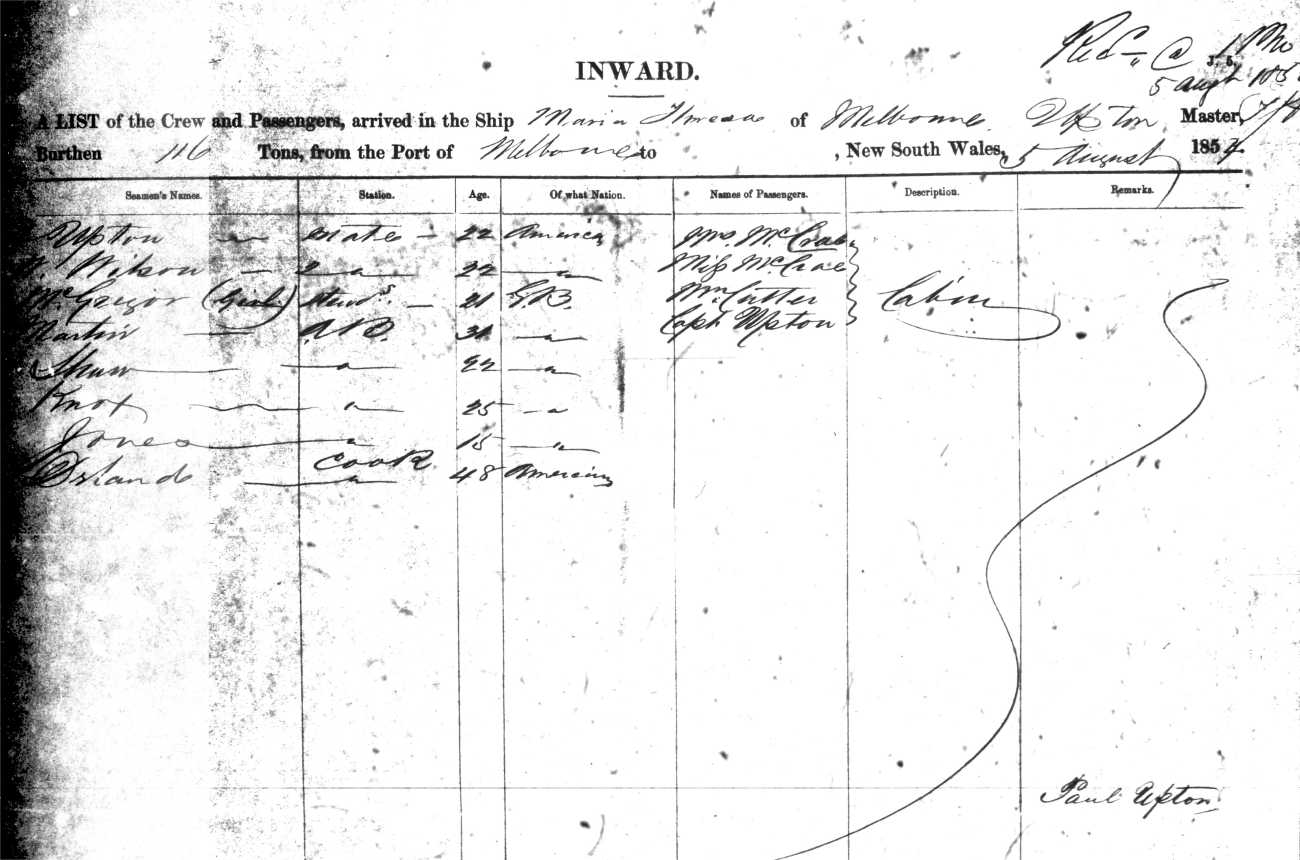 INWARD.
J. 5.
5 augt 185
A LIST of the Crew and Passengers, arrived in the Ship Maria Theresa of Melbourne Upton Master,
Burthen 116 Tons, from the Port of Melbourne to , New South Wales, 5 August 1854
Seamen's Names. Station. Age. Of what Nation. Names of Passengers. Description. Remarks.
Upton " mate 22 America Mrs McCrae
Wilson 2 " 22 " Miss McCrae
McGregor Stewds 21 G.B. Cutter Cabin
Martin A.B. 31 " Capt Upton
Shaw " 22 "
Knox " 25 "
Jones " 15 "
Orlando Cook " 48 American
Paul Upton